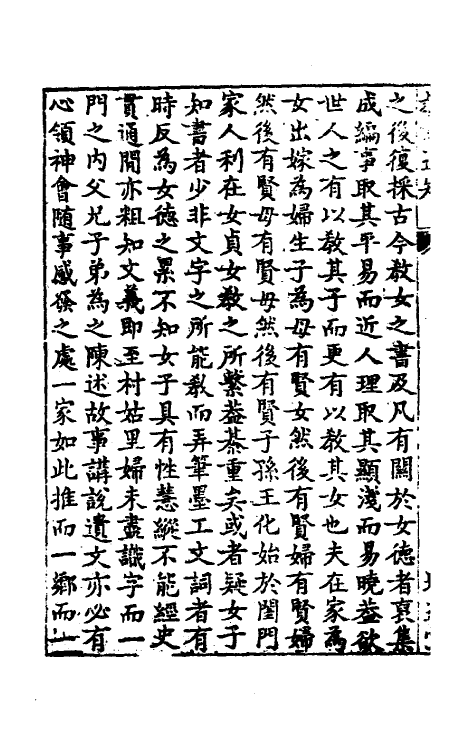 之後復採古今教女之書及凡有關於女德者裒集
成編事取其平易而近人理取其顯淺而易曉葢欲
世人之有以教其子而更有以教其女也夫在家為
女出嫁為婦生子為母有賢女然後有賢婦有賢婦
然後有賢母有賢母然後有賢子孫王化始於閨門
家人利在女貞女教之所繫葢綦重矣或者疑女子
知書者少非文字之所能教而弄筆墨工文詞者有
時反為女德之累不知女子具有性慧縱不能經史
貫通閒亦粗知文義即至村姑里婦未盡識字而一
門之內父兄子弟為之陳述故事講說遺文亦必有
心領神會隨事感發之處一家如此推而一鄉而